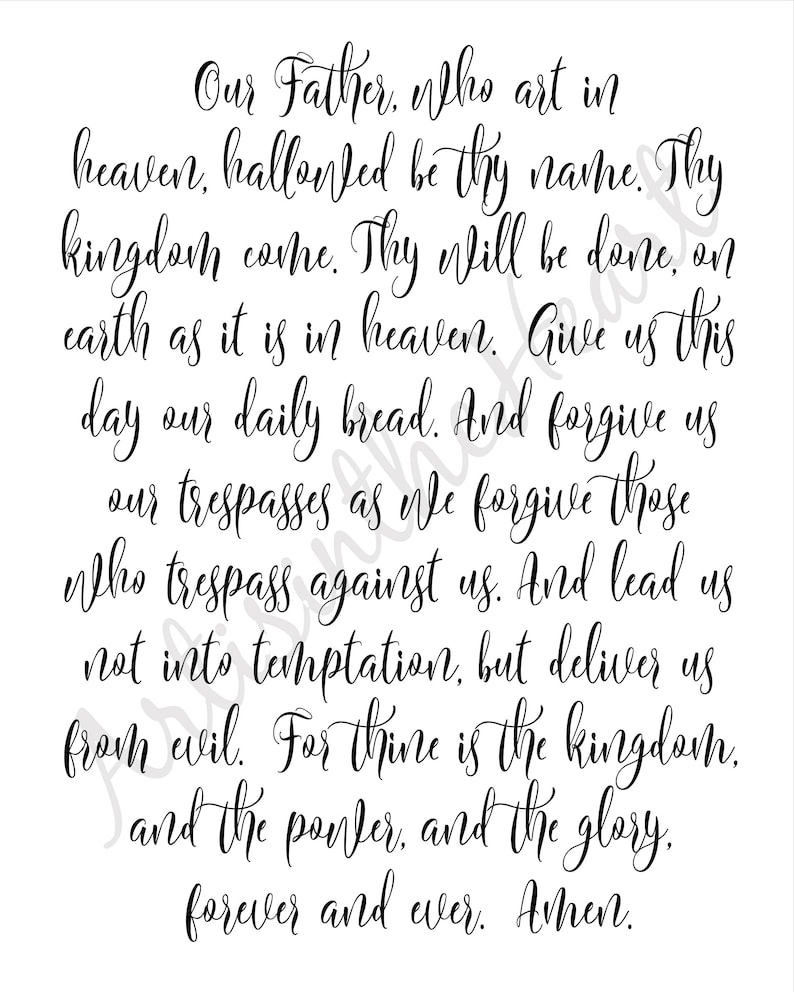 Our Father, who art in
heaven, hallowed be thy name. Thy
kingdom come. Thy will be done, on
earth as it is in heaven. Give us this
day our daily bread. And forgive us
our trespasses as we forgive those
who trespass against us. And lead us
not into temptation, but deliver us
from evil. For thine is the kingdom,
and the power, and the glory,
forever and ever. Amen.
ArtisintheHeart